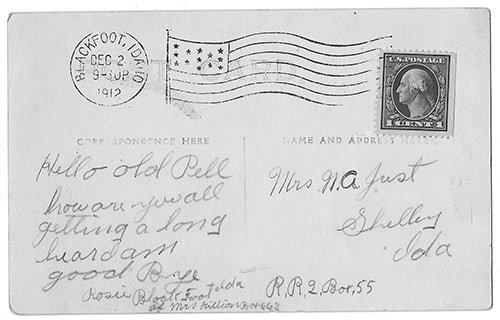 BLACKFOOT, IDAHO
DEC 2
9-30P
1912
POST CARD
U.S. POSTAGE
1 CENT 1
CORRESPONDENCE HERE
NAME AND ADDRESS HERE
Hello old Pell
how are you all
getting a long
heard am
good Bye
Rosie Black Foot Idda
at Mrs Killion Box 662
Mrs. N.a Just
Shelley
Ida
R,R,2 Box, 55